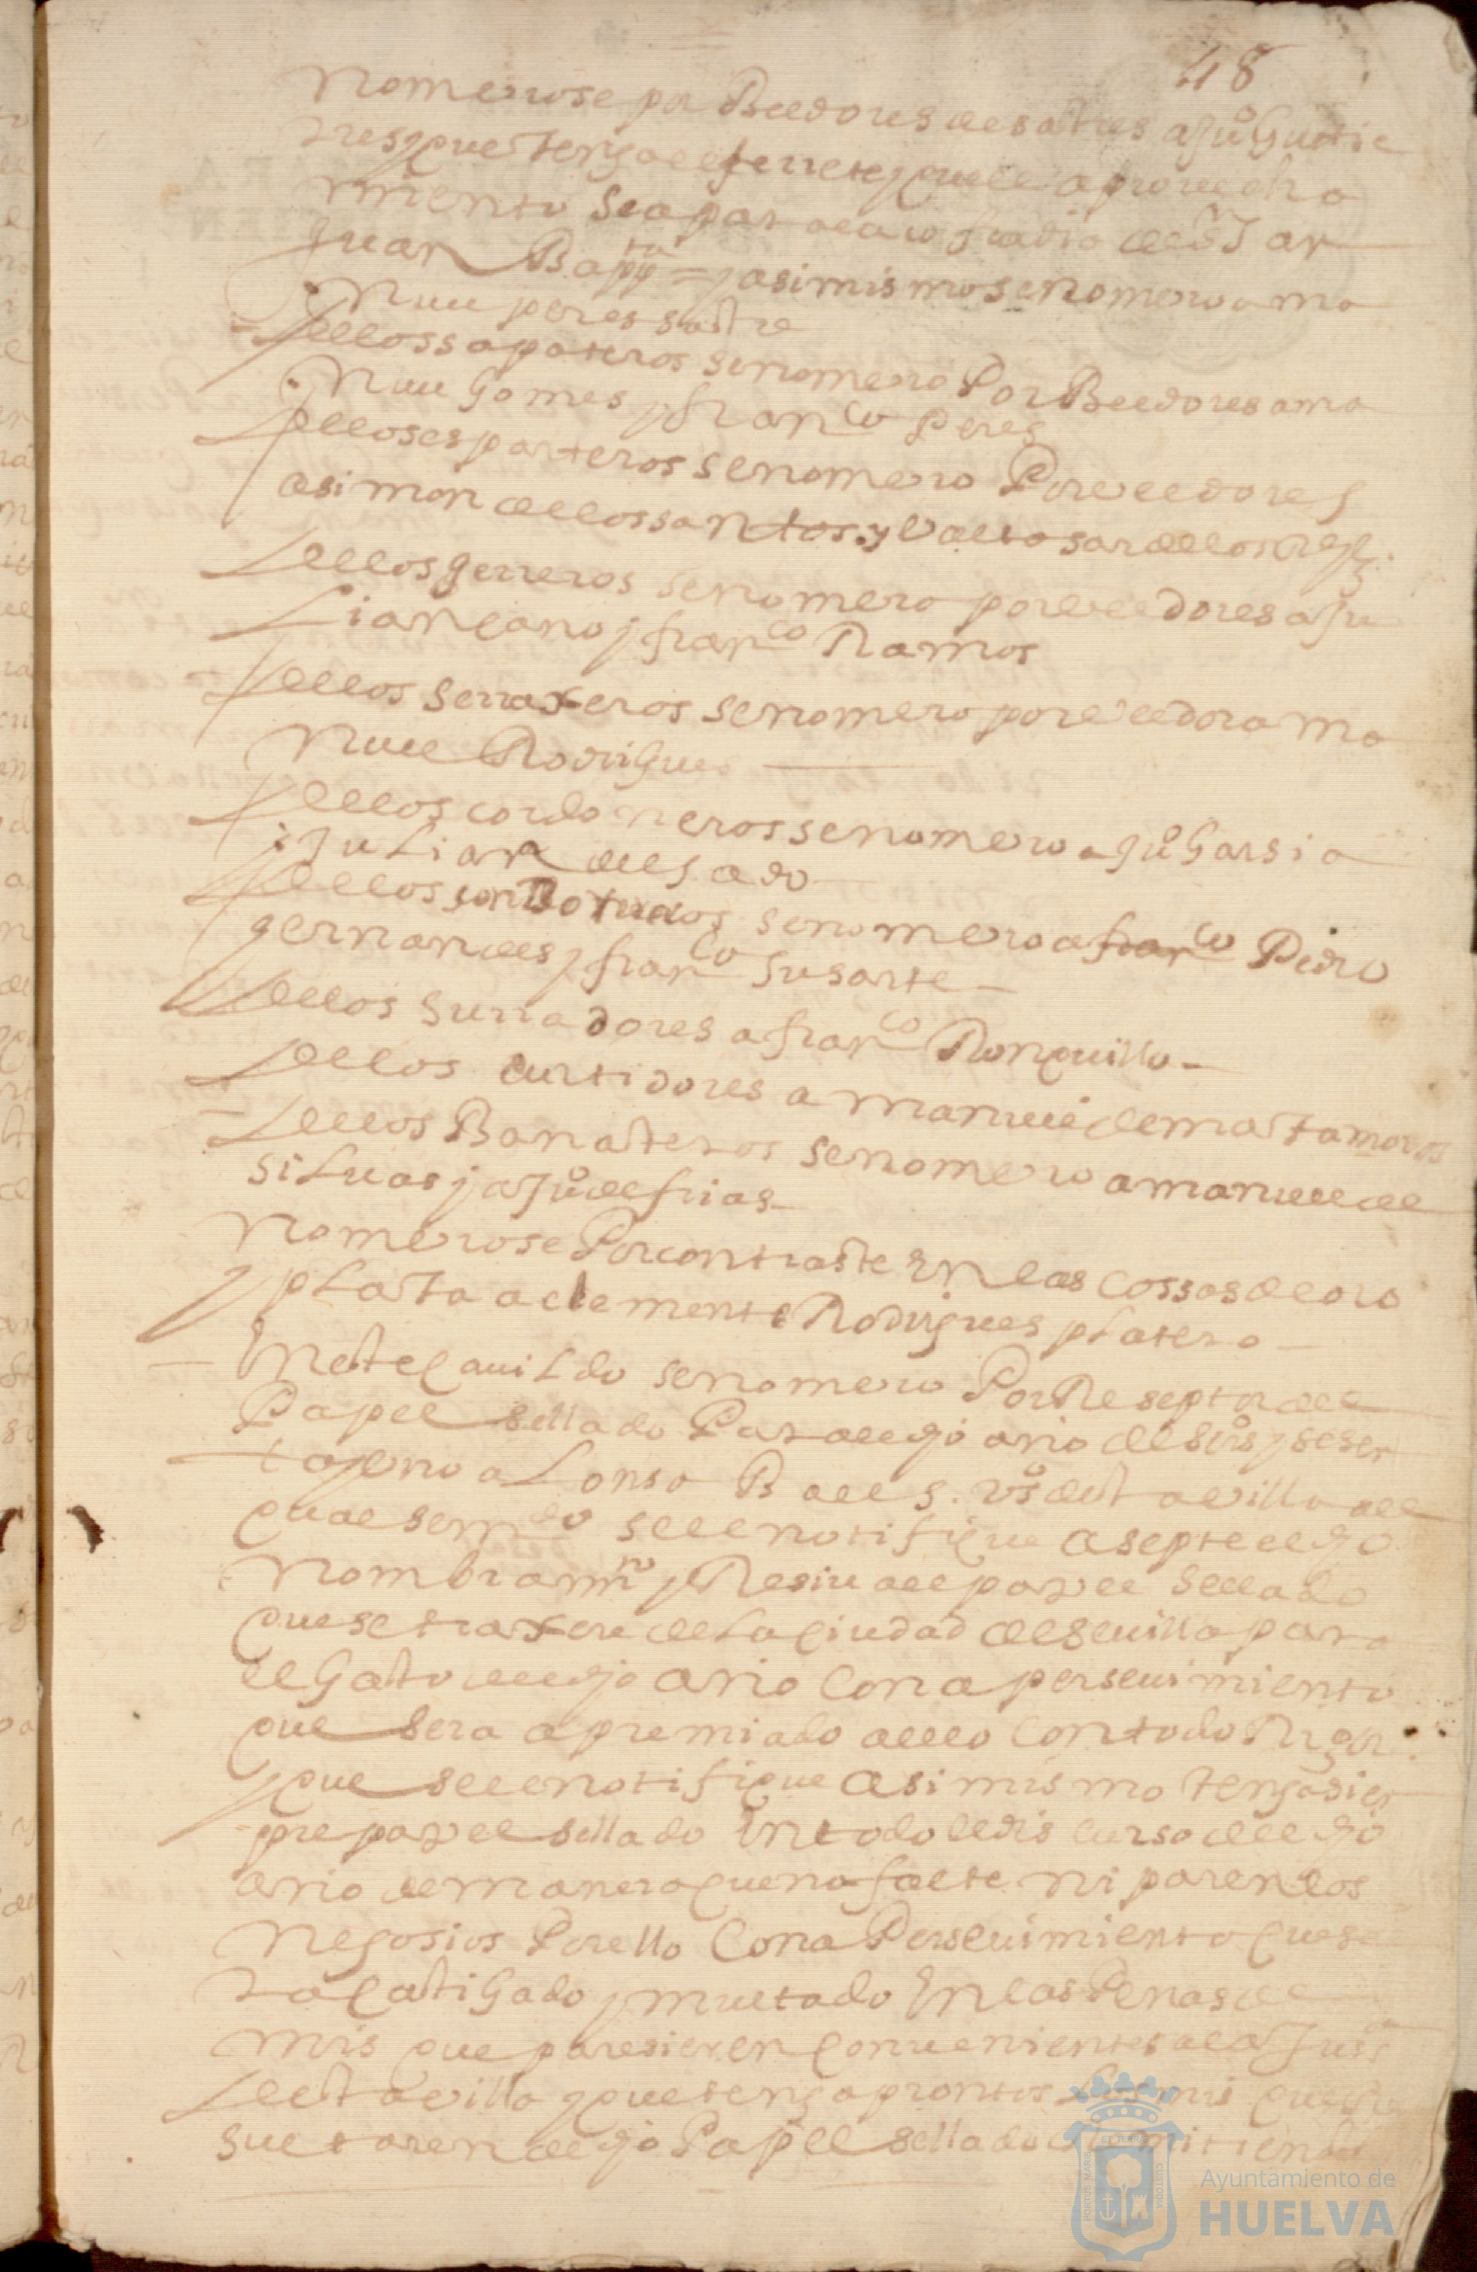 48
nomerose por Beedores de sastres a Juº Gutie
rres que tenga el ferrete que el aprovecha
miento sea para la cofradia de Sn J an
Juan Bapta = y asimismo se nomero a ma
nuel peres sastre
de los sapateros se nomero Por Beedores a ma
nuel Gomes y franco Peres
de los esparteros se nomero Por veedores
a simon de los santos y baltosar de los Reys
de los gerreros se nomero por veedores a Ju
Liançano y franco Ramos
de los serraxeros se nomero por veedor a ma
nuel Rodrigues
de los cordoneros se nomero a Juº Garsia
i Julian delgado
de los se nomero a franco Pedro
gernandes y franco Susarte
de los surradores a franco Ronquillo
de los curtidores a manuel de matamoros
de los Banasteros se nomero a manuel de
siluas y a Juº de frias
nomerose Por contraste En las cossas de oro
y plata a clemente Rodrigues platero
En este cauildo se nomero Por Reseptor del
Papel sellado Para el dho año de seis y sesen
ta y uno a Lonso B aes. vº desta villa al
qual se mdo se le notifique asepte el dho
nombramto y Resiua el papel sellado
que se traxere de La çiudad de seuilla para
el Gasto del dho año Con apersevimiento
que sera apremiado a ello Con todo Rigor
y que se le notifique asi mismo tenga siem
pre papel sellado En todo el discurso del dho
año de manera que no falte ni paren los
negosios Por ello Con aPersevimiento que se
ra Castigado y multado En las Penas de
mrs que paresieren Conuenientes a la Justa
desta villa y que tenga prontos Los mrs que Re
sultaren del dho Papel sellado Remitiendo
Ayuntamiento de
HUELVA